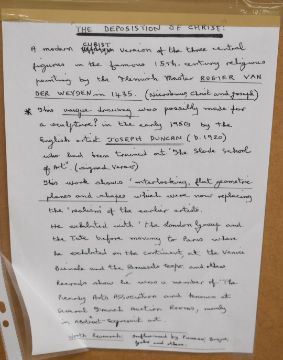 THE DEPOSITION OF CHRIST:
CHRIST
A modern version of the three central
figures in the famous 15th. century religious
painting by the Flemish Master ROGIER VAN
DER WEYDEN in 1435. (Nicodemus, Christ and Joseph)
* This unique drawing was possibly made for
a sculpture? in the early 1950s by the
English artist JOSEPH DUNCAN (b.1920)
who had been trained at 'The Slade School
of Art'. (signed Verso)
This work shows 'interlocking, flat geometric
planes and shapes which were now replacing
the 'realism' of the earlier artists.
He exhibited with 'The London Group' and
the Tate before moving to Paris where
he exhibited on the continent, at the Venice
Biennale and the Brussels Expo. and other
Records show he was a member of 'The
Penwith Arts Association and known at
several French Auction Rooms, mainly
in Abstract-Expressionist art.
influenced by Picasso, Braque,
and others.